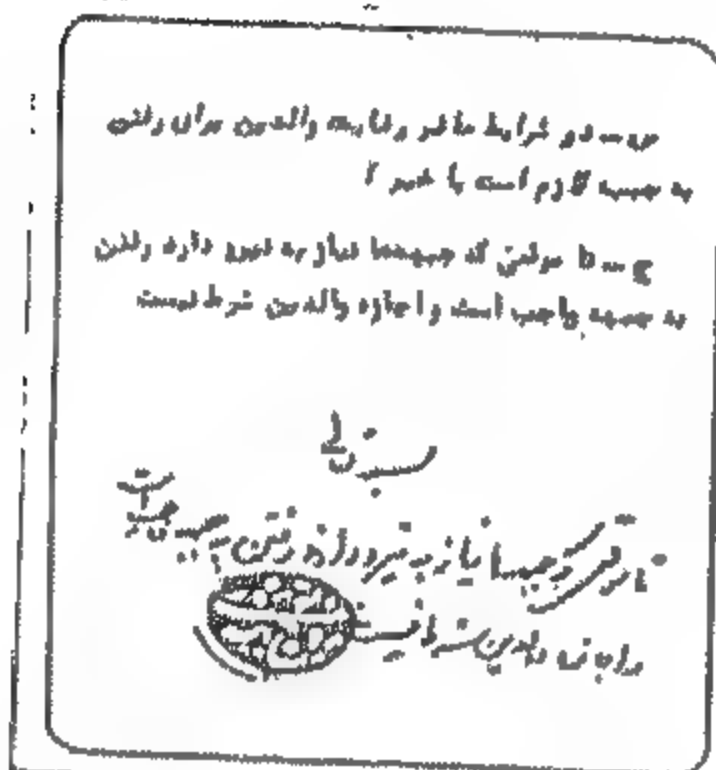 س ــ در شرایط حاضر رضایت والدین برای رفتن
به جبهه لازم است یا خیر ؟
ج ــ تا موقعی که جبهه‌ها نیاز به نیرو دارد رفتن
به جبهه واجب است و اجازه والدین شرط نیست
تا وقتی که جبهه‌ها نیاز به نیرو دارند رفتن به جبهه واجب است
والدین شرط نیست